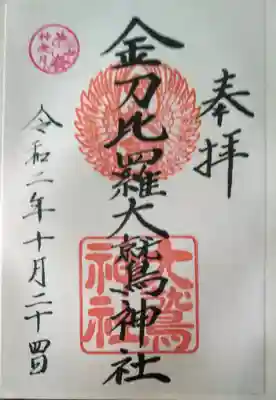 奉拝
金刀比羅大鷲神社
令和二年十月二十四日
大鷲
神社